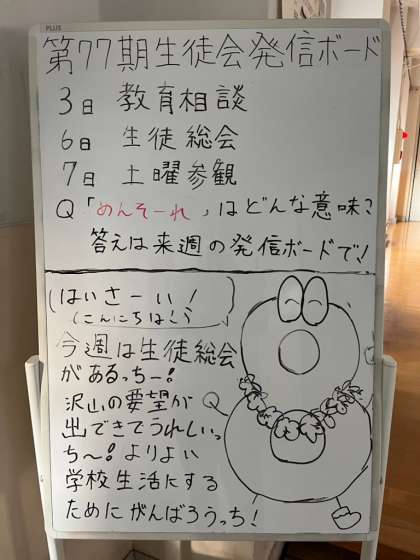 PLUS
第77期生徒会発信ボード
3日 教育相談
6日 生徒総会
7日 土曜参観
Q「めんそーれ」はどんな意味?
答えは来週の発信ボードで!
はいさーい!
(こんにちは!)
今週は生徒総会
があるっちー!
沢山の要望が
出てきてうれしいっ
ち〜!よりよい
学校生活にする
ためにがんばろうっち!